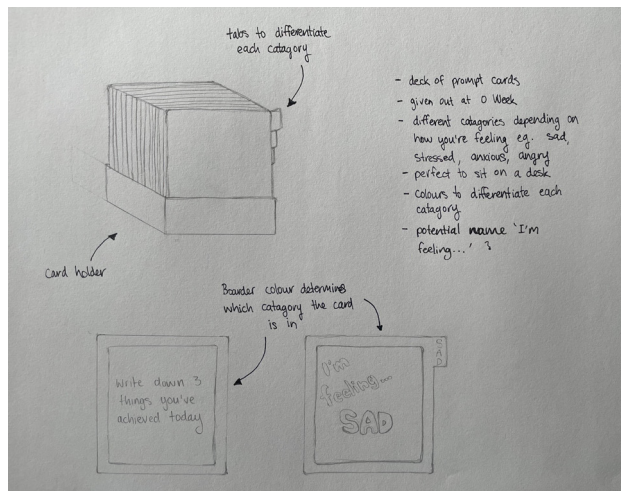 tabs to differentiate
each catagory
- deck of prompt cards
- given out at O Week
- different catagories depending on
how you're feeling eg. sad,
stressed, anxious, angry
- perfect to sit on a desk
- colours to differentiate each
catagory
- potential name 'I'm
feeling...'
card holder
Boarder colour determines
which catagory the card
is in
Write down 3
things you've
achieved today
I'm
feeling...
SAD
SAD